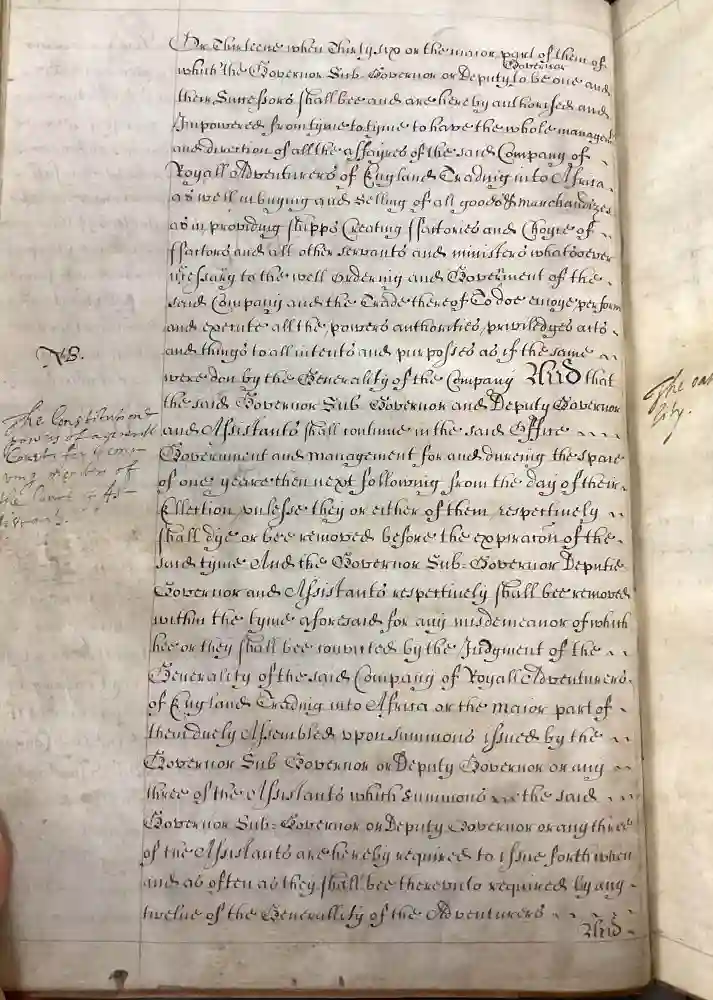 Or Thirteene when Thirty six or the maior part of them of
Governor
which the Governor Sub-Governor or Deputy to be one and
their Successors shall bee and are hereby authorised and
Impowered from tyme to tyme to have the whole managem
and direction of all the affayres of the said Company of
Royall Adventurers of England Tradnig into Africa
as well in buying and Selling of all goods & marchandizes
as in providing shipps Creating ffactories and Choyce of
ffactors and all other servants and ministers whatsoever
nessary to the well ordernig and Goverment of the
said Company and the Trade thereof To doe enioye perform
and execute all the powers authorities priviledges acts
and things to all intents and purposses as if the same
were don by the Generality of the Company And that
the said Governor Sub Governor and Deputy Governor
and Assistants shall continue in the said Office
Government and management for and dureing the space
of one yeare then next following from the day of their
Ellection unlesse they or either of them respectively
shall dye or bee removed before the expiraton of the
said tyme And the Governor Sub-Governor Deputie
Governor and Assistants respectively shall bee removed
within the tyme aforesaid for any misdemeanor of which
hee or they shall bee convicted by the Judgment of the
Generality of the said Company of Royall Adventurers
of England Tradnig into Africa or the maior part of
them duely Assembled upon summons issued by the
Governor Sub Governor or Deputy Governor or any
three of the Assistants which Summons the said
Governor Sub-Governor or Deputy Governor or any three
of the Assistants are hereby required to issue forth when
and as often as they shall bee thereunto required by any
twelve of the Generallity of the Adventurers
And
NB.
The Constitution
powers of a generall
Court for
members of
the Court
The oa